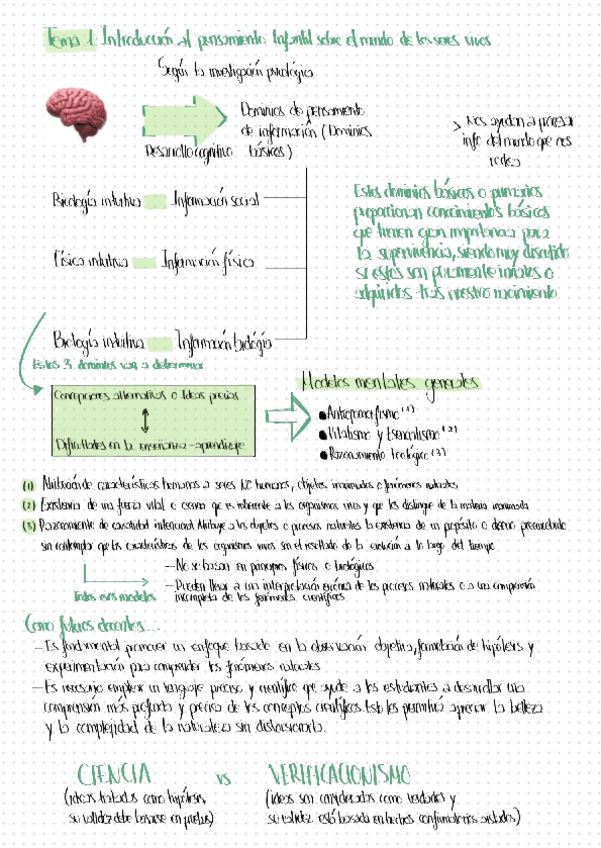 Tema 1: Introducción al pensamiento Infantil sobre el mundo de los seres vivos
Según la investigación psicológica
Dominios de pensamiento
de información (Dominios
básicos)
Desarrollo cognitivo
> Nos ayudan a procesar
info del mundo que nos
rodea
Psicología intuitiva Información social
Física intuitiva Información física
Biología intuitiva Información biología
Estos dominios básicos o primarios
proporcionan conocimientos básicos
que tienen gran importancia para
la supervivencia, siendo muy discutido
si estos son puramente innatos o
adquiridos tras nuestro nacimiento
Estos 3 dominios van a determinar
Concepciones alternativas o Ideas previas
Dificultades en la enseñanza-aprendizaje
Modelos mentales generales
Antropomorfismo (1)
Vitalismo y Esencialismo (2)
Razonamiento teológico (3)
(1) Atribución de características humanas a seres NO humanos, objetos inanimados o fenómenos naturales
(2) Existencia de una fuerza vital o esencia que es inherente a los organismos vivos y que los distingue de la materia inanimada
(3) Razonamiento de causalidad intencional. Atribuye a los objetos o procesos naturales la existencia de un propósito o diseño preconcebido
sin contemplar que las características de los organismos vivos son el resultado de la evolución a lo largo del tiempo
Todos esos modelos
— No se basan en principios físicos o biológicos
— Pueden llevar a una interpretación errónea de los procesos naturales o a una comprensión
incompleta de los fenómenos científicos
Como futuros docentes...
— Es fundamental promover un enfoque basado en la observación objetiva, formulación de hipótesis y
experimentación para comprender los fenómenos naturales
— Es necesario emplear un lenguaje preciso y científico que ayude a los estudiantes a desarrollar una
comprensión más profunda y precisa de los conceptos científicos. Esto les permitirá apreciar la belleza
y la complejidad de la naturaleza sin distorsionarla.
CIENCIA vs VERIFICACIONISMO
(ideas tratadas como hipótesis,
su validez debe basarse en pruebas)
(ideas son consideradas como verdades y
su validez está basada en hechos confirmatorios aislados)